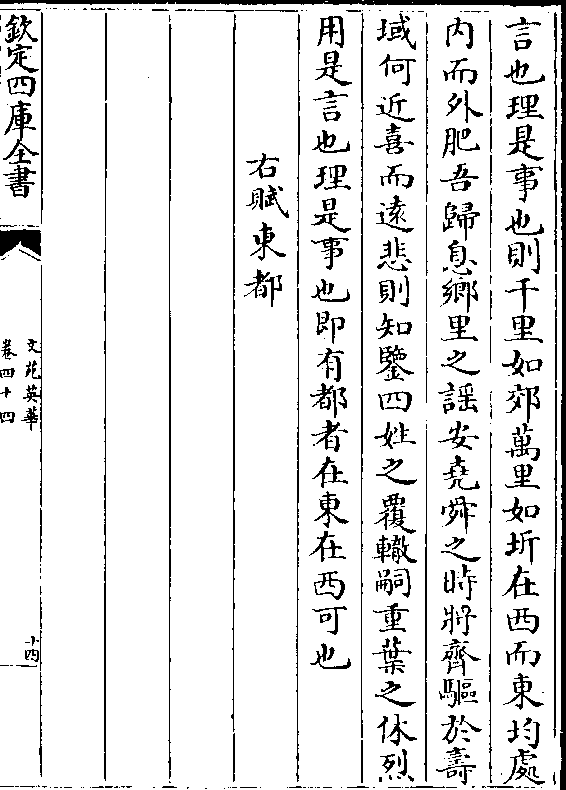 言也理是事也則千里如郊萬里如圻在西而東均處
内而外肥吾歸息鄉里之謡安堯舜之時將齊驅於壽
域何近喜而遠悲則知鑒四姓之覆轍嗣重葉之休烈
用是言也理是事也即有都者在東在西可也
右賦東都
欽定四庫全書
文苑英華
卷四十四
十四